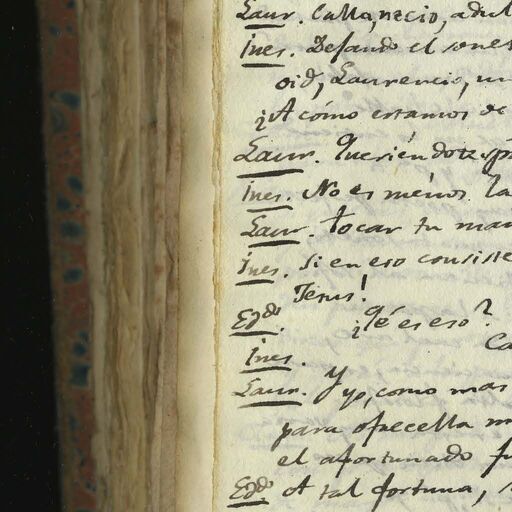 Laur. Calla, necio, adul
Ines. Dejando el sones
oid, Laurencio, un
¡A cómo estamos de
Laur. Queriéndote
Ines. No es menos la
Laur. tocar tu man
Ines. Si en eso consiste
Jesus!
Egdo. ¿Qé es eso?
Ca
Ines.
Laur. Y yo, como mas
para ofrecella m
el afortunado
Egdo. A tal fortuna,